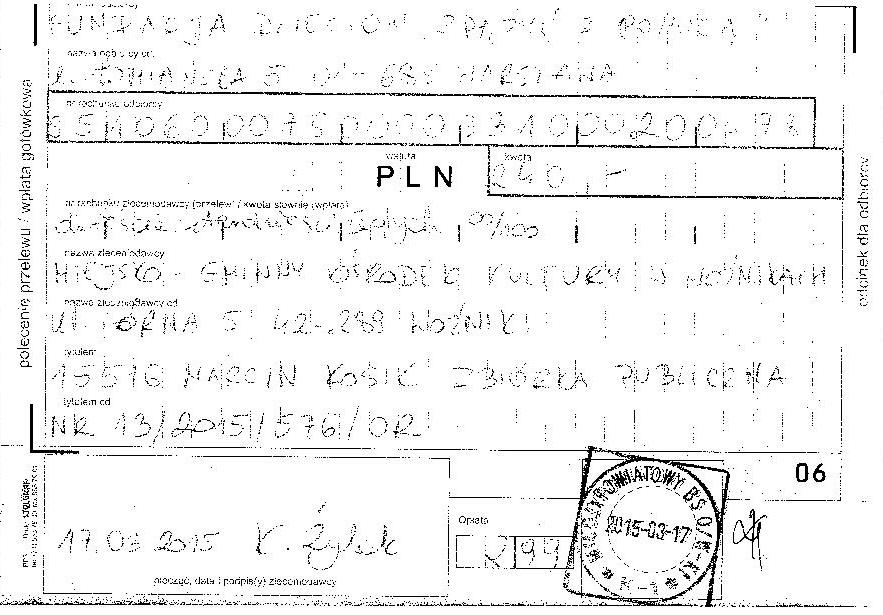 FUNDACJA DZIECIOM "ZDĄŻYĆ Z POMOCĄ"
nazwa odbiorcy cd.
ul. ŁOMIAŃSKA 5 01-685 WARSZAWA
nr rachunku odbiorcy
waluta
PLN
kwota
240,-
nr rachunku zleceniodawcy (przelew) / kwota słownie (wpłata)
dwieście czterdzieści złotych 00/100
nazwa zleceniodawcy
MIEJSKO-GMINNY OŚRODEK KULTURY W WOŹNIKACH
nazwa zleceniodawcy cd.
42-289 WOŹNIKI
tytułem
15516 MARCIN KOSIK ZBIÓRKA PUBLICZNA
tytułem cd.
NR 13/2015/576/OR
06
17.03.2015 K. Żyłek
pieczęć, data i podpis(y) zleceniodawcy
Opłata
2 99
MIĘDZYPOWIATOWY BS
2015-03-17
polecenie przelewu / wpłata gotówkowa
odcinek dla odbiorcy